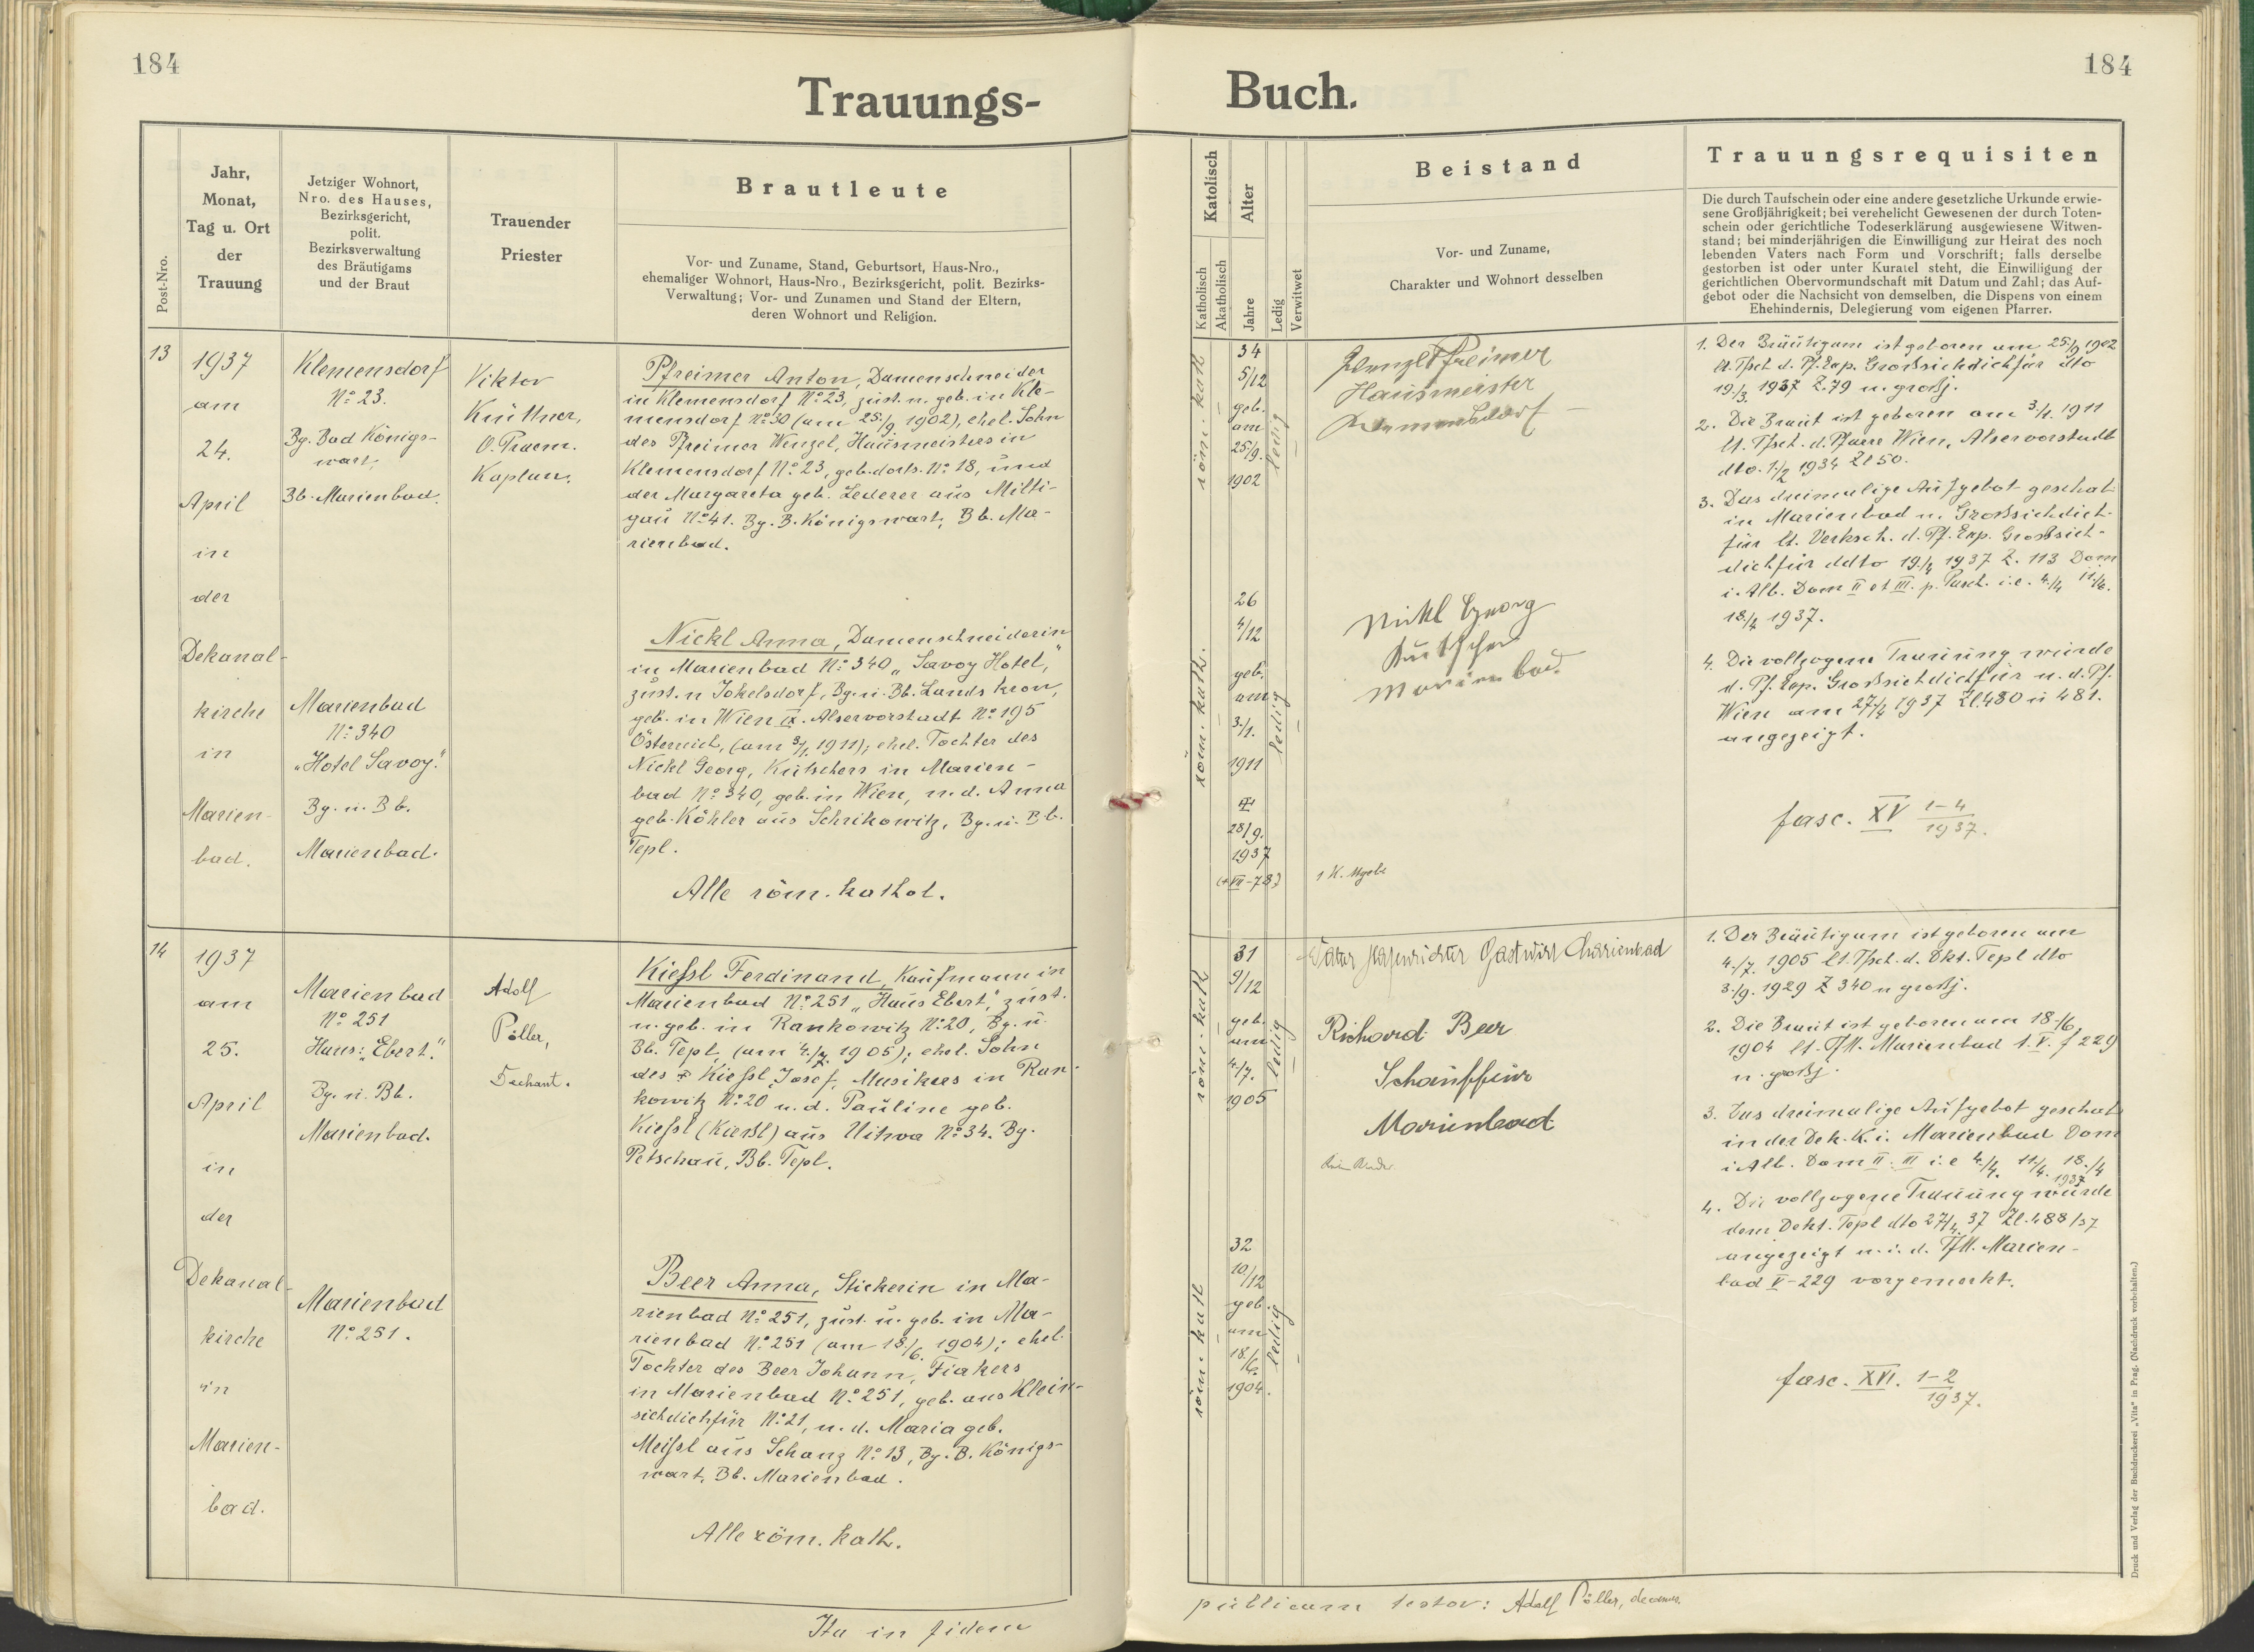 184
184
Trauungs-
Buch.
Post-Nro.
Jahr,
Monat,
Tag u. Ort
der
Trauung
Jetziger Wohnort,
Nro. des Hauses,
Bezirksgericht,
polit.
Bezirksverwaltung
des Bräutigams
und der Braut
Trauender
Priester
Brautleute
Vor- und Zuname, Stand, Geburtsort, Haus-Nro.,
ehemaliger Wohnort, Haus-Nro., Bezirksgericht, polit. Bezirks-
Verwaltung; Vor- und Zunamen und Stand der Eltern,
deren Wohnort und Religion.
Katolisch
Katholisch
Akatholisch
Alter
Jahre
Ledig
Verwitwet
Beistand
Vor- und Zuname,
Charakter und Wohnort desselben
Trauungsrequisiten
Die durch Taufschein oder eine andere gesetzliche Urkunde erwie-
sene Großjährigkeit; bei verehelicht Gewesenen der durch Toten-
schein oder gerichtliche Todeserklärung ausgewiesene Witwen-
stand; bei minderjährigen die Einwilligung zur Heirat des noch
lebenden Vaters nach Form und Vorschrift; falls derselbe
gestorben ist oder unter Kuratel steht, die Einwilligung der
gerichtlichen Obervormundschaft mit Datum und Zahl; das Auf-
gebot oder die Nachsicht von demselben, die Dispens von einem
Ehehindernis, Delegierung vom eigenen Pfarrer.
13
1937
am
24.
April
in
der
Dekanal-
kirche
in
Marien-
bad.
Klemensdorf
No 23.
Bg. Bad Königs-
wart,
Bb. Marienbad.
Marienbad
No 340
"Hotel Savoy."
Bg. u. Bb.
Marienbad.
Viktor
Küttner,
O. Praem.
Kaplan.
Pfreimer Anton, Damenschneider
in Klemensdorf No 23, zust. u. geb. in Kle-
mensdorf No 30 (am 25./9. 1902), ehel. Sohn
des Pfreimer Wenzel, Hausmeisters in
Klemensdorf No 23, geb. dorts. No 18, und
der Margareta geb. Lederer aus Milti-
gau No 41. Bg. B. Königswart, Bb. Ma-
rienbad.
Nickl Anna, Damenschneiderin
in Marienbad No 340 "Savoy Hotel",
zust. n Jokelsdorf, Bg. u. Bb. Landskron,
geb. in Wien IX. Alservorstadt No 195
Österreich, (am 3/1. 1911); ehel. Tochter des
Nickl Georg, Kutschers in Marien-
bad No 340, geb. in Wien, u. d. Anna
geb. Köhler aus Schrikowitz, Bg. u. Bb.
Tepl.
Alle röm. kathol.
röm. kath
34
5/12
geb.
am
25/9.
1902
ledig
röm. kath.
26
4/12
geb.
am
3./1.
1911
ledig
28/9.
1937
(+ VII-78)
Wenzl Pfreimer
Hausmeister
Nickl Georg
Kutscher
Marienbad
1. Der Bräutigam ist geboren am 25./9 1902
lt. Tfsch. d. Pf. Exp. Großsichdichfür dto
19./3. 1937 Z. 79 u. großj.
2. Die Braut ist geboren am 3/1. 1911
lt. Tfsch. d. Pfarre Wien, Alservorstadt
dto. 1./2 1934 Zl 50.
3. Das dreimalige Aufgebot geschah
in Marienbad u. Großsichdich-
für lt. Verksch. d. Pf. Exp. Großsich-
dichfür ddto 19./4 1937 Z. 113 Dom
i. Alb. Dom II et III. p. Pasch. i. e. 4./4 11./4.
18./4 1937.
4. Die vollzogene Trauung wurde
d. Pf. Exp. Großsichdichfür u. d. Pf.
Wien am 27./4 1937 Zl. 480 u 481.
angezeigt.
fasc. XV 1-4
1937.
14
1937
am
25.
April
in
der
Dekanal-
kirche
in
Marien-
bad.
Marienbad
No 251
Haus: "Ebert."
Bg. u. Bb.
Marienbad.
Marienbad
No 251.
Adolf
Pöller,
Dechant.
Kieſsl Ferdinand, Kaufmann in
Marienbad No 251 "Haus Ebert", zust.
u. geb. in Rankowitz No 20, Bg. u.
Bb. Tepl, (am 4./7. 1905); ehel. Sohn
des Kieſsl Josef, Musikers in Ran-
kowitz No 20 u. d. Pauline geb.
Kieſsl (Kießl) aus Uitwa No 34. Bg.
Petschau, Bb. Tepl.
Beer Anna, Stickerin in Ma-
rienbad No 251, zust. u. geb. in Ma-
rienbad No 251 (am 18./6. 1904); ehel.
Tochter des Beer Johann, Fiakers
in Marienbad No 251, geb. aus Klein-
sichdichfür No 21, u. d. Maria geb.
Meiſsl aus Schanz No 13, Bg. B. Königs-
wart, Bb. Marienbad.
Alle röm. kath.
röm. kath
31
9/12
geb.
am
4./7.
1905
ledig
röm kath
32
10/12
geb.
am
18./6.
1904.
ledig
Gastwirt Marienbad
Richard Beer
Schauffeur
Marienbad
1. Der Bräutigam ist geboren am
4./7. 1905 lt. Tfsch. d. Dkt. Tepl dto
3./9. 1929 Z 340 u großj.
2. Die Braut ist geboren am 18./6.
1904 lt. TfM. Marienbad t. V. f 229
u. großj.
3. Das dreimalige Aufgebot geschah
in der Dek. K. i. Marienbad Dom
i Alb. Dom II. III i. e 4./4. 11/4. 18./4
1937
4. Die vollzogene Trauung wurde
dem Dekt. Tepl dto 27/4. 37 Zl. 488/37
angezeigt u. i. d. TfM. Marien-
bad V-229 vorgemerkt.
fasc. XVI. 1-2
1937.
Ita in fidem
publicam testor: Adolf Pöller, decanus.
Druck und Verlag der Buchdruckerei „Vita" in Prag. (Nachdruck vorbehalten.)